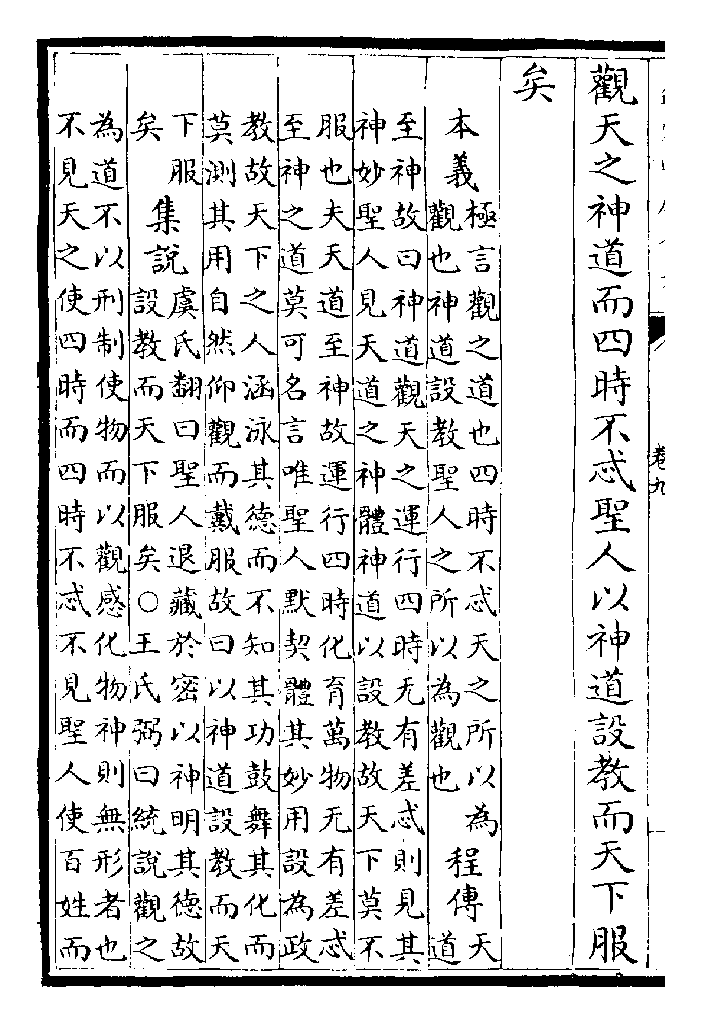 卷九
觀天之神道而四時不忒聖人以神道設教而天下服
矣
本義
極言觀之道也四時不忒天之所以為
觀也神道設教聖人之所以為觀也
程傳
天
道
至神故曰神道觀天之運行四時无有差忒則見其
神妙聖人見天道之神體神道以設教故天下莫不
服也夫天道至神故運行四時化育萬物无有差忒
至神之道莫可名言唯聖人默契體其妙用設為政
教故天下之人涵泳其德而不知其功鼓舞其化而
莫測其用自然仰觀而戴服故曰以神道設教而天
下服
矣
集說
虞氏翻曰聖人退藏於密以神明其德故
設教而天下服矣○王氏弼曰統說觀之
為道不以刑制使物而以觀感化物神則無形者也
不見天之使四時而四時不忒不見聖人使百姓而